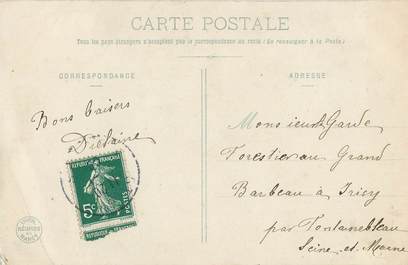 CARTE POSTALE
Tous les pays étrangers n'acceptent pas la correspondance au recto (Se renseigner à la Poste)
CORRESPONDANCE
ADRESSE
Bons baisers
Monsieur Garde
Forestier au Grand
Barbeau à Féricy
par Fontainebleau
Seine et Marne
REPUBLIQUE FRANÇAISE
5c
POSTES
REUNIES
NANCY